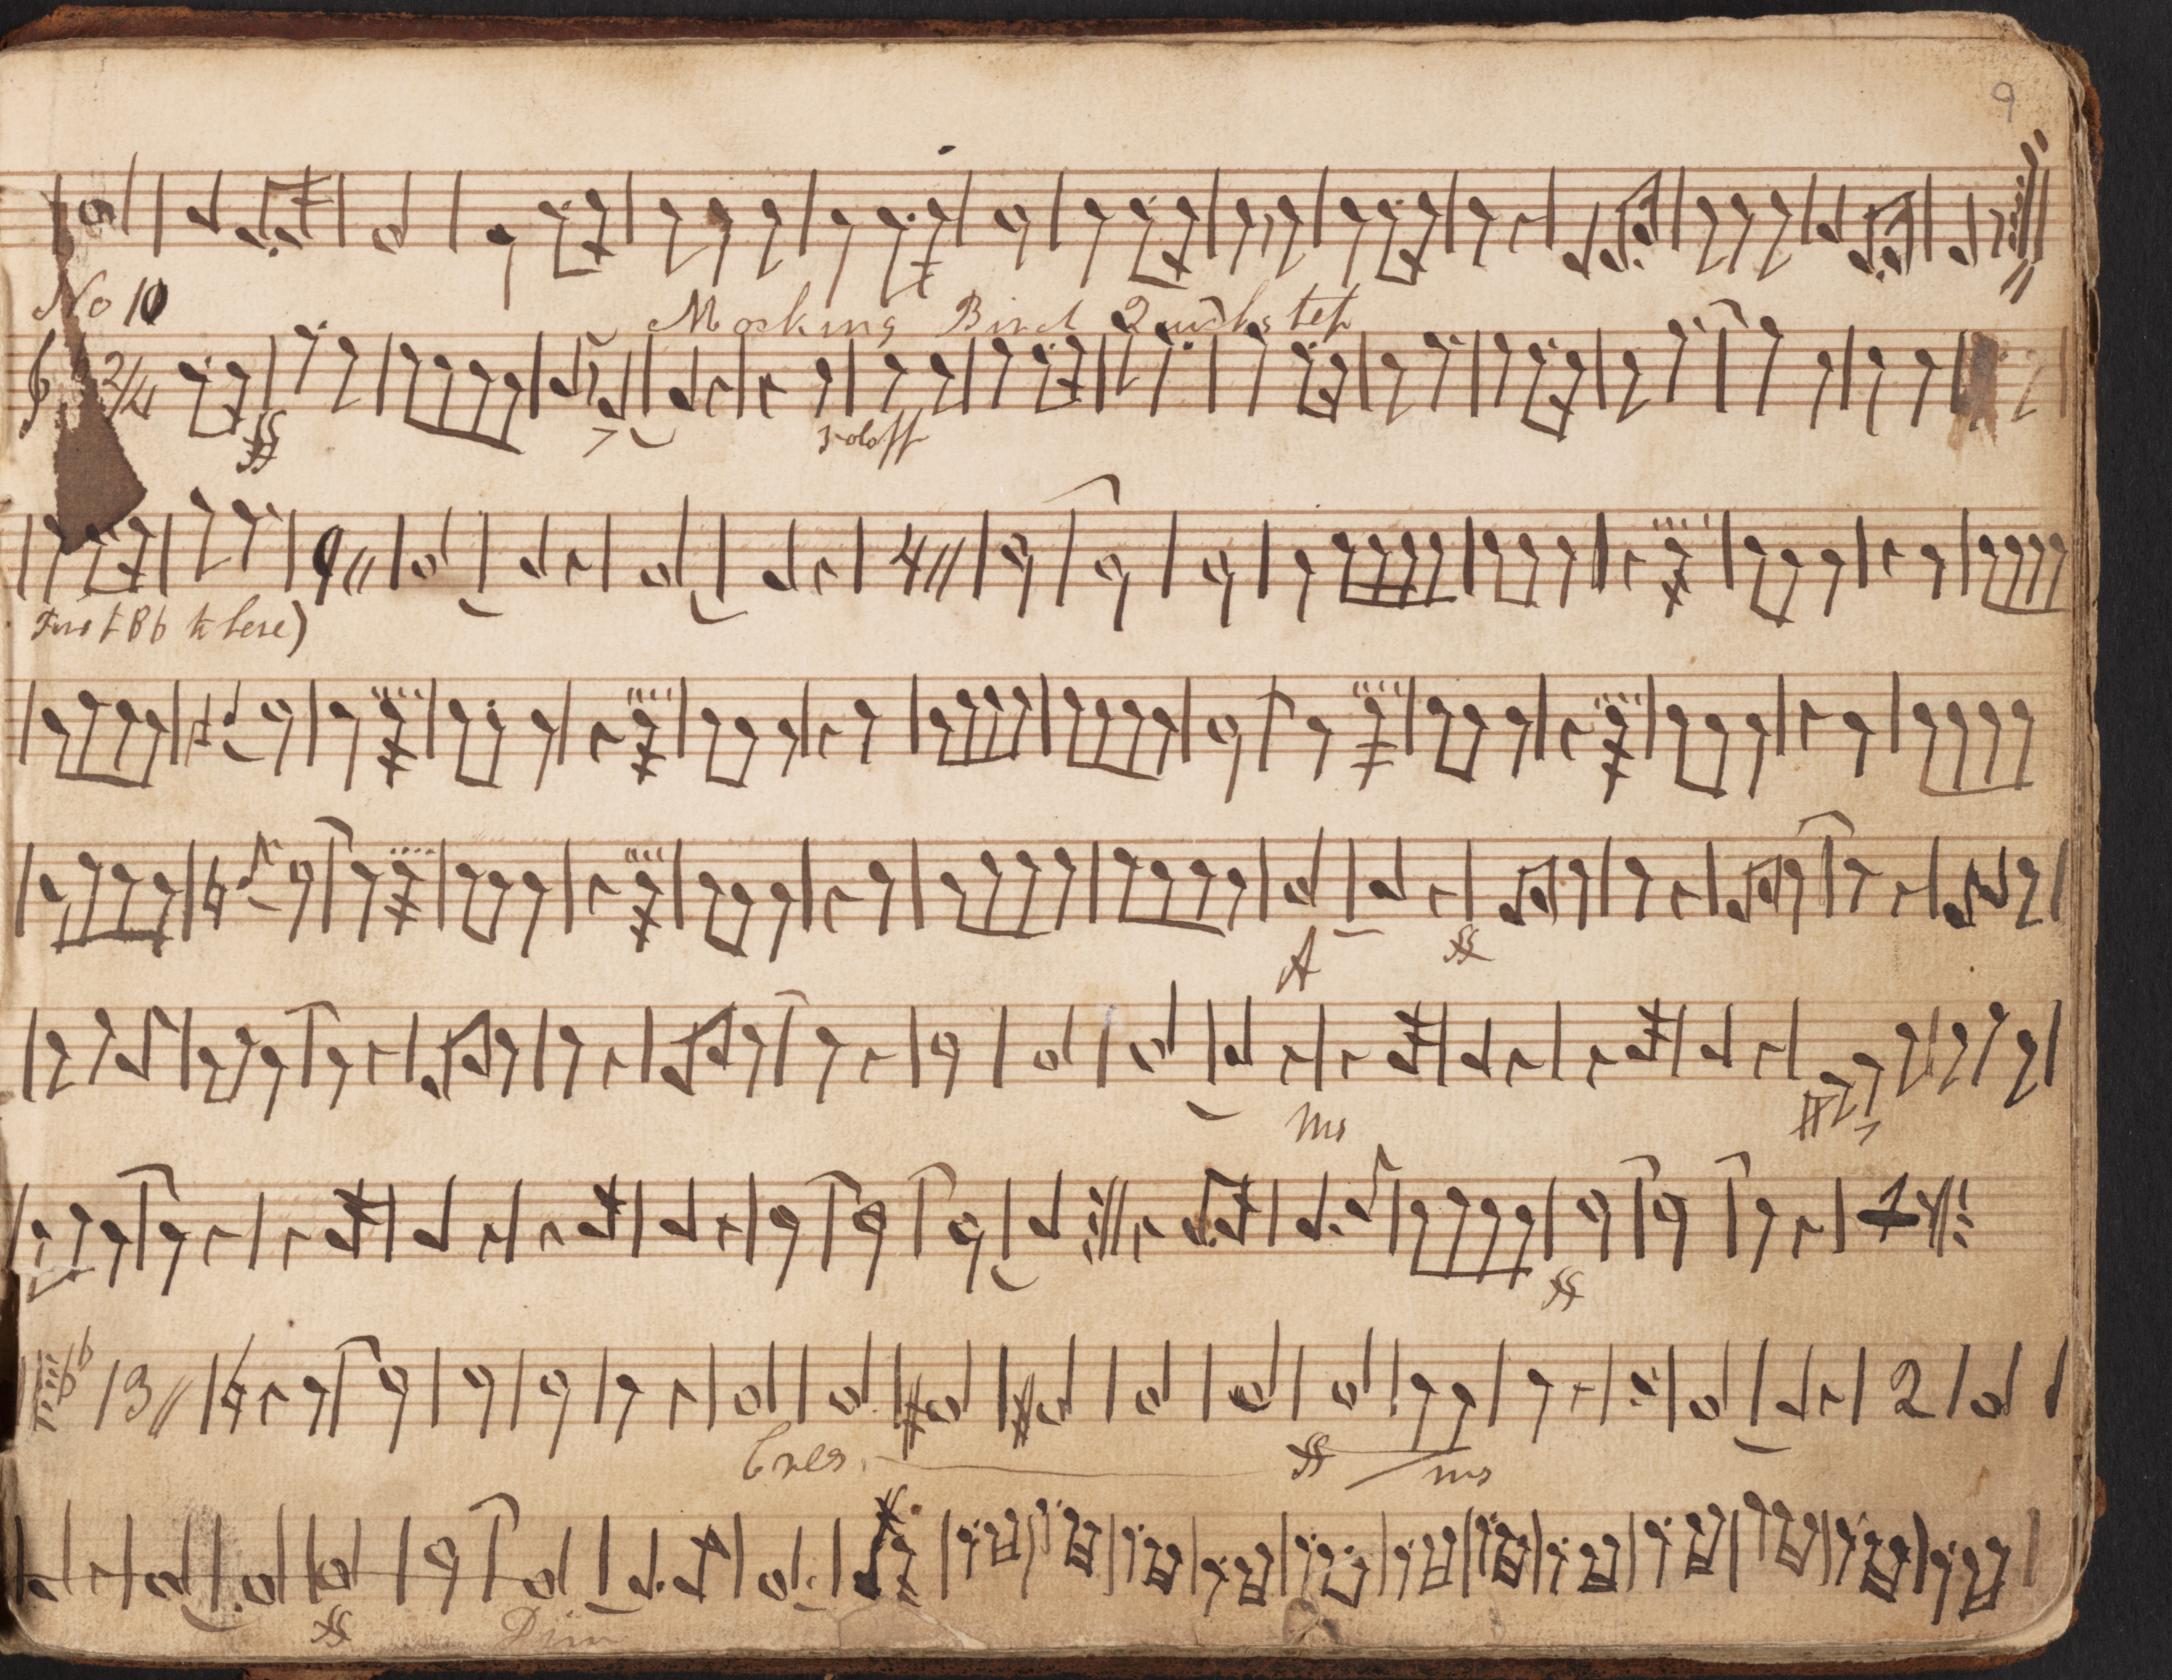 9
No 10 Mocking Bird Quickstep
2/4
ff soloff
9 4
First Bb to here)
A ff
ms
ff
3 2
Cres. ff ms
ff Dim